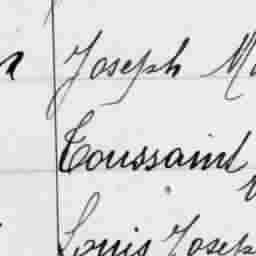 Joseph
Toussaint
Louis Joseph